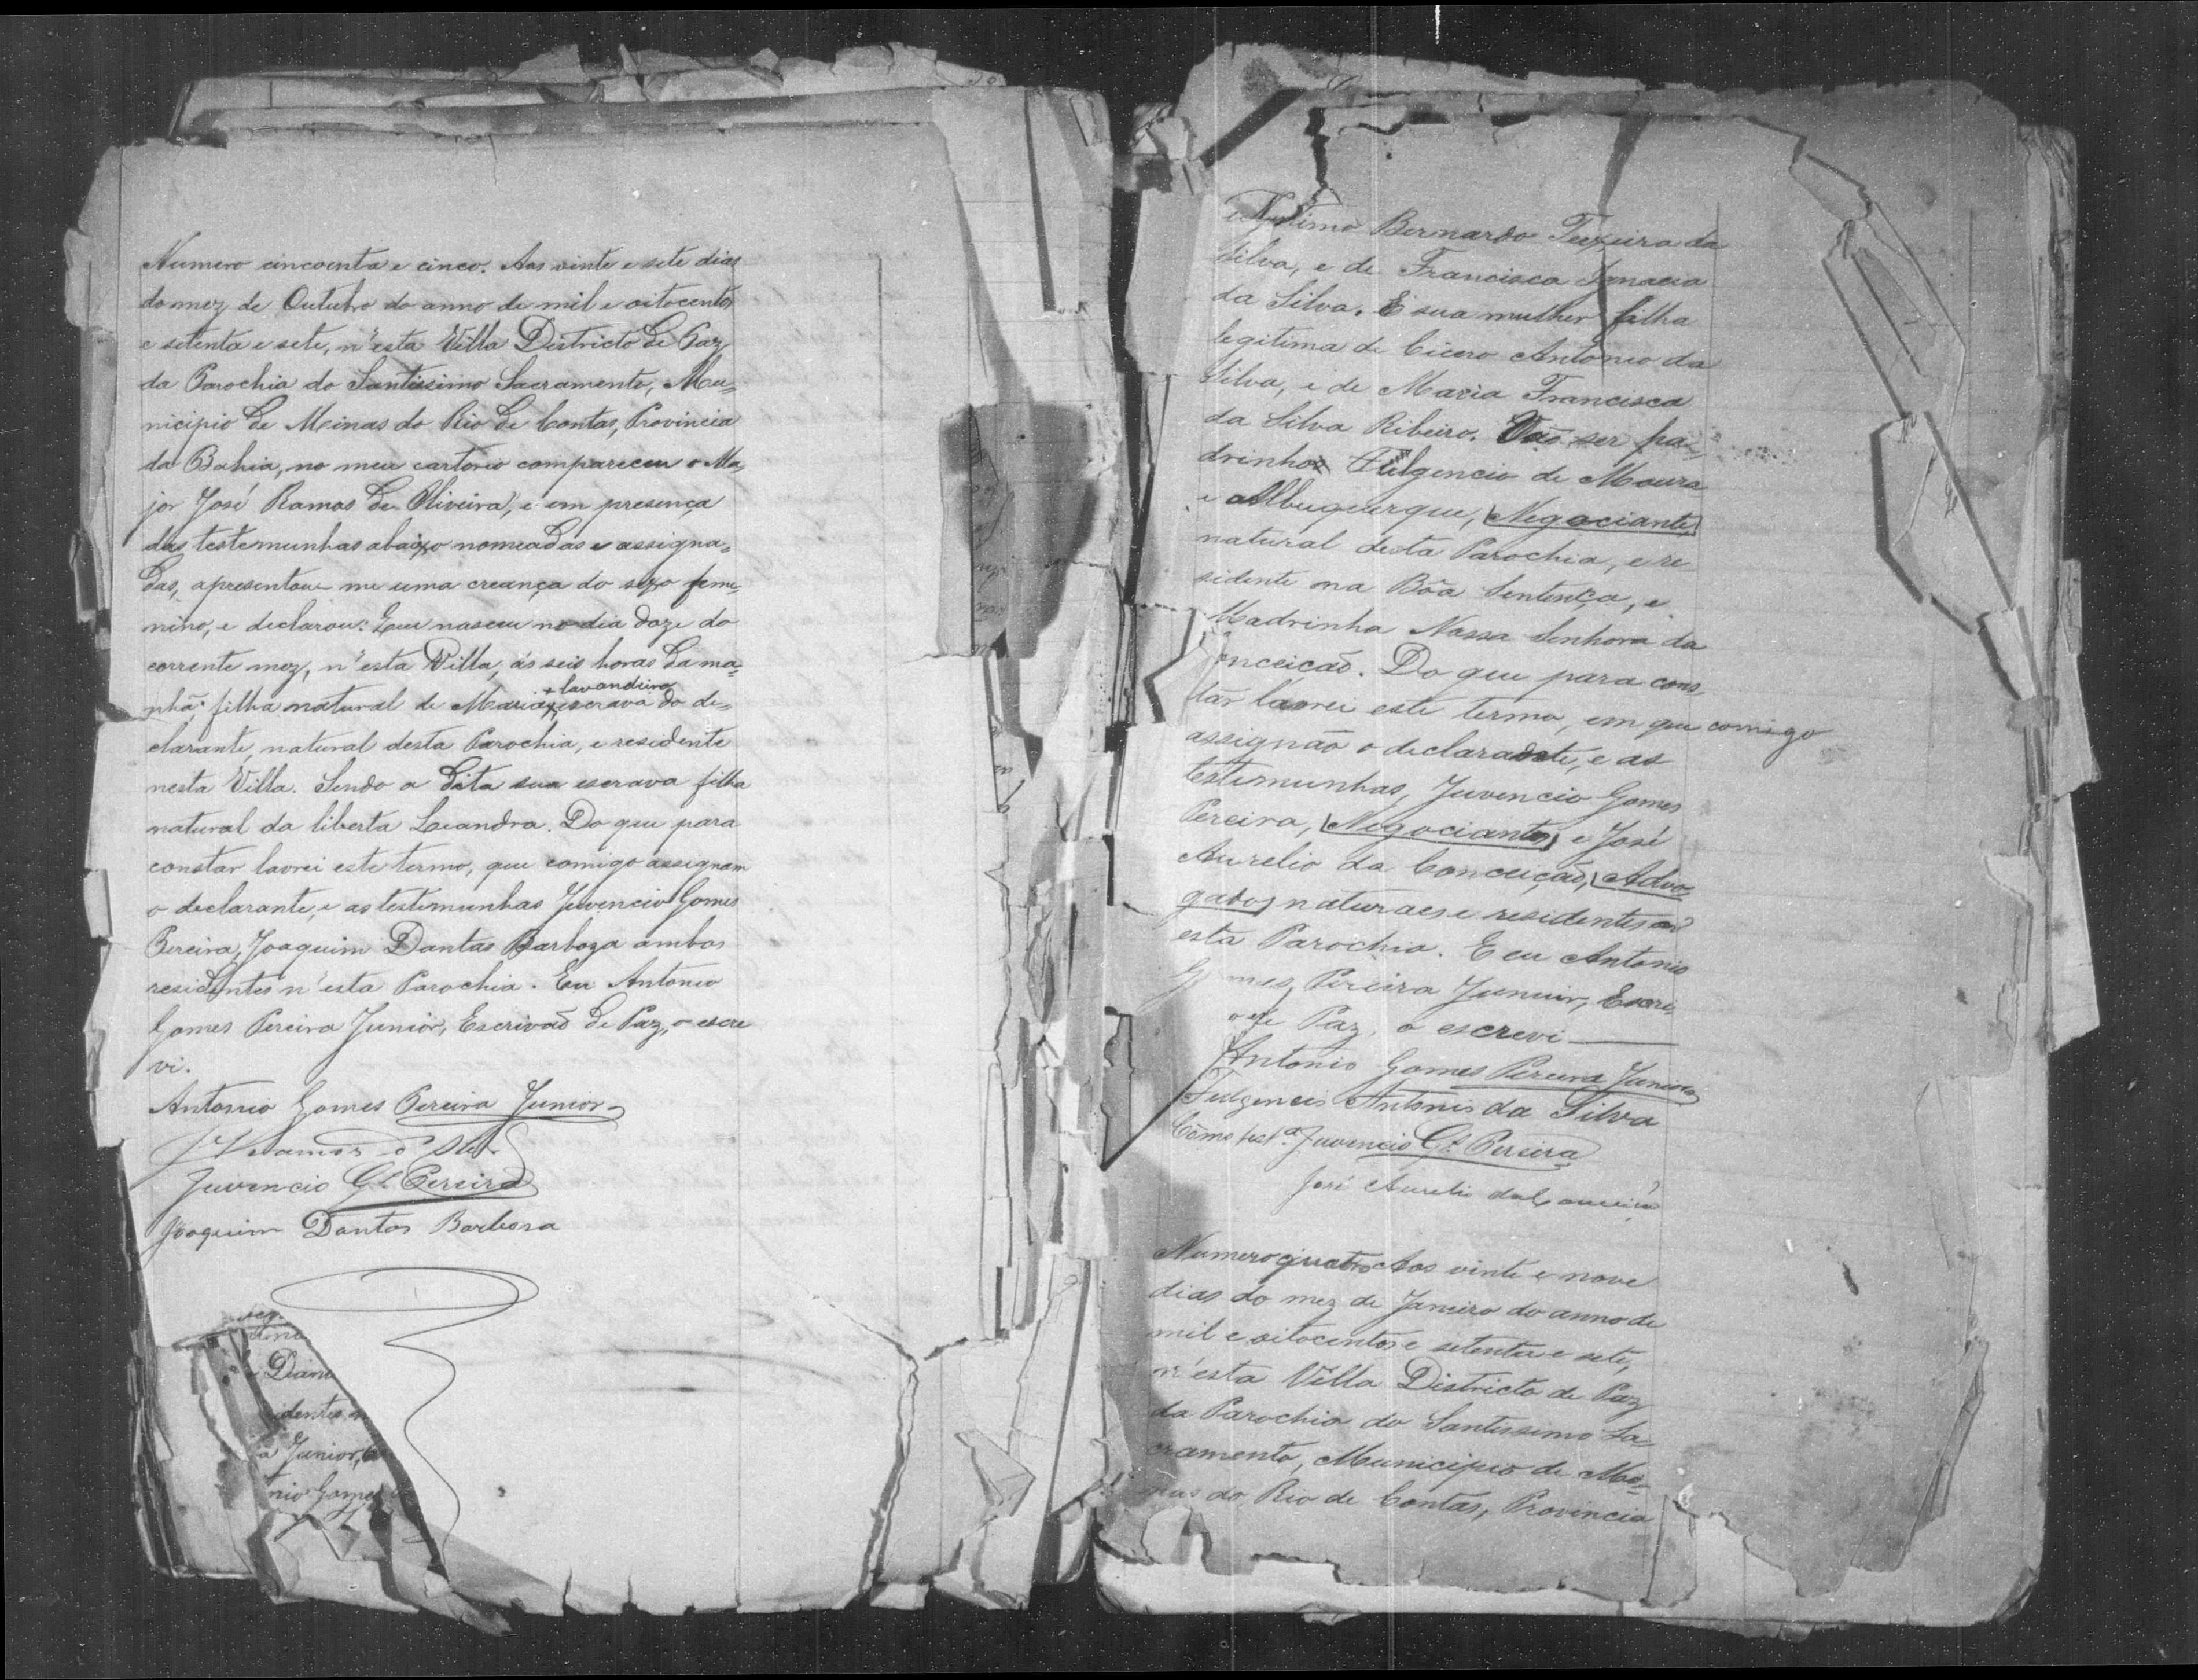 Numero cincoenta e cinco. Aos vinte e sete dias
do mez de Outubro do anno de mil e oitocentos
e setenta e sete, n'esta Villa Districto de Paz
da Parochia do Santissimo Sacramento, Mu=
nicipio de Minas do Rio de Contas, Provincia
da Bahia, no meu cartorio compareceu o Ma=
jor José Ramos de Oliveira, e em presença
das testemunhas abaixo nomeadas e assigna=
das, apresentou me uma creança do sexo femi=
nino, e declarou: Que nasceu no dia doze do
corrente mez, n'esta Villa, ás seis horas da ma=
+ lavandeira
nhã: filha natural de Maria, + escrava do de=
clarante, natural desta Parochia, e residente
nesta Villa. Sendo a dita sua escrava filha
natural da liberta Leandra. Do que para
constar lavrei este termo, que comigo assignam
o declarante, e as testemunhas Juvencio Gomes
Pereira, Joaquim Dantas Barboza ambos
residentes n'esta Parochia. Eu Antonio
Gomes Pereira Junior, Escrivaõ de Paz, o escre
vi.
Antonio Gomes Pereira Junior
J Ramos d'Olivª
Juvencio Gs. Pereira
Joaquim Dantas Barbosa
Dian
identes n
a Junior, E
nio Gomes
legitimo Bernardo Teixeira da
Silva, e de Francisca Ignacia
da Silva. E sua mulher filha
legitima de Cicero Antonio da
Silva, e de Maria Francisca
da Silva Ribeiro. Vão ser pa=
drinhos Fulgencio de Moura
e Albuquerque, Negociante,
natural desta Parochia, e re
sidente na Bôa Sentença, e
Madrinha Nossa Senhora da
onceicaõ. Do que para cons
tar lavrei este termo, em que comigo
assignão o declarante, e as
testemunhas, Juvencio Gomes
Pereira, Negociante, e José
Aurelio da Conceição, Advo=
gado, naturaes e residentes n'
esta Parochia. E eu Antonio
G mes Pereira Junior, Escri
o de Paz, o escrevi
Antonio Gomes Pereira Junior
Fulgencio Antonio da Silva
Como testª. Juvencio Gs. Pereira
José Aurelio da Conceição
Numero quatro Aos vinte e nove
dias do mez de Janeiro do anno de
mil e oitocentos e setenta e sete,
n'esta Villa Districto de Paz
da Parochia do Santissimo Sa
cramento, Municipio de Mi=
nas do Rio de Contas, Provincia